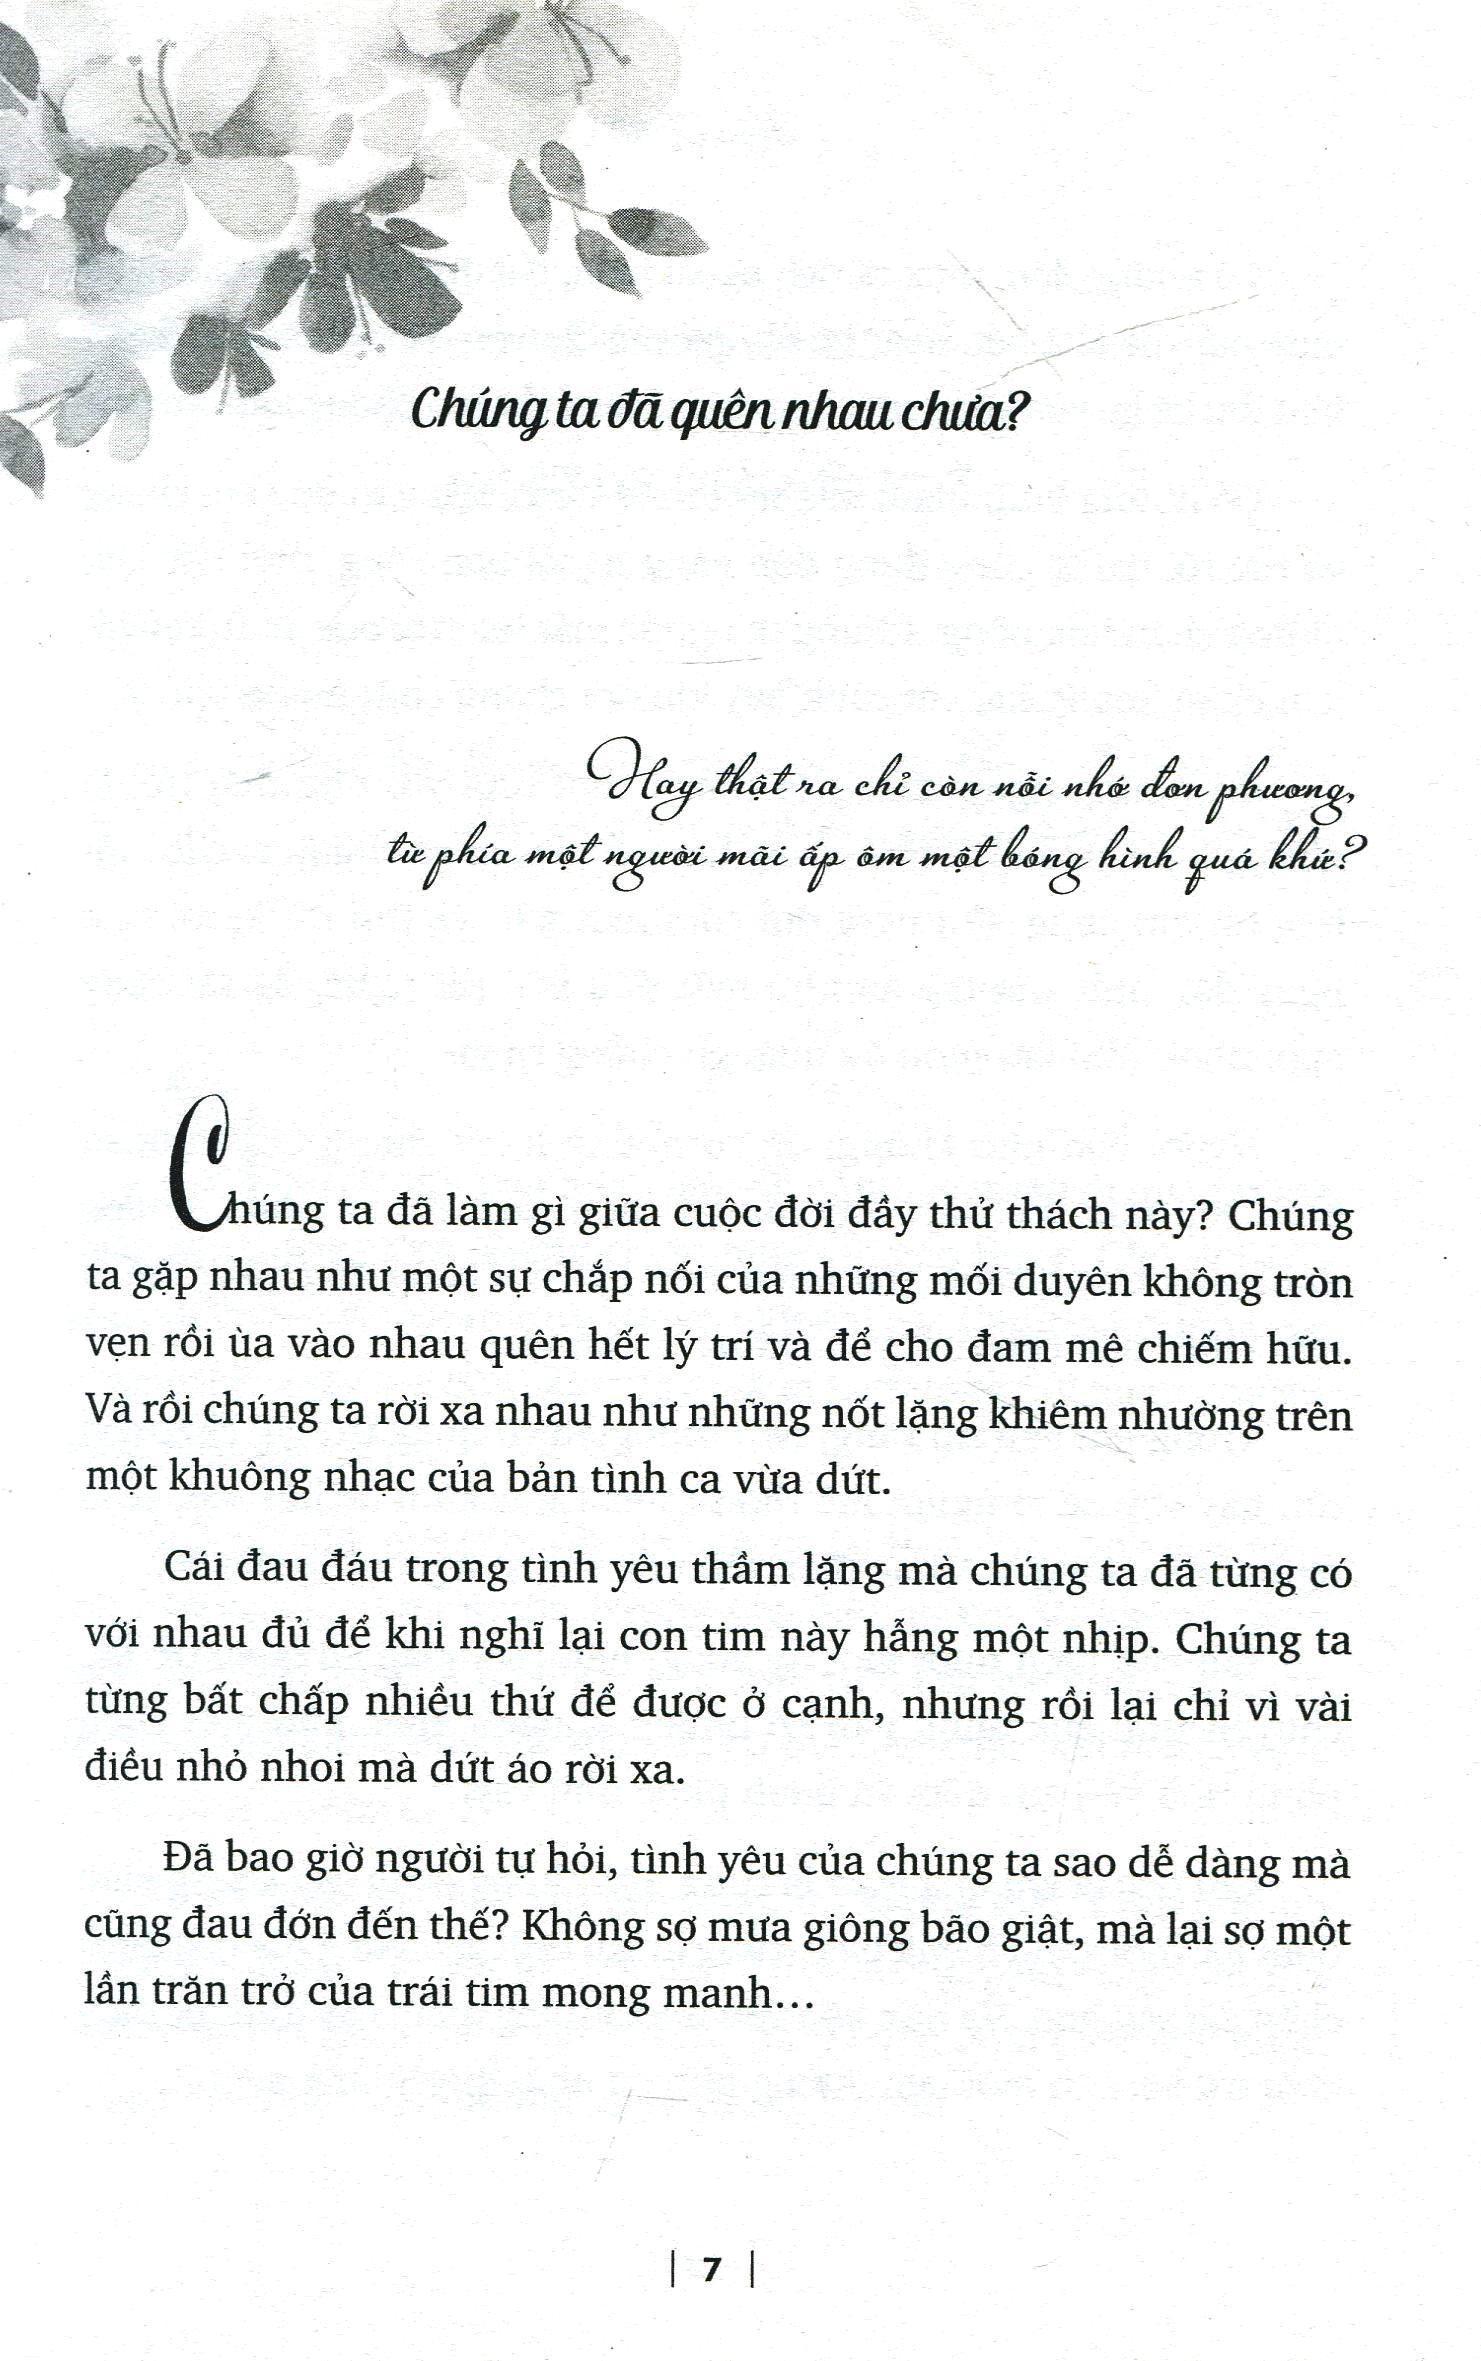 Chúng ta đã quên nhau chưa?
Hay thật ra chỉ còn nỗi nhớ đơn phương,
từ phía một người mãi ấp ôm một bóng hình quá khứ?
Chúng ta đã làm gì giữa cuộc đời đầy thử thách này? Chúng
ta gặp nhau như một sự chắp nối của những mối duyên không tròn
vẹn rồi ùa vào nhau quên hết lý trí và để cho đam mê chiếm hữu.
Và rồi chúng ta rời xa nhau như những nốt lặng khiêm nhường trên
một khuông nhạc của bản tình ca vừa dứt.
Cái đau đáu trong tình yêu thầm lặng mà chúng ta đã từng có
với nhau đủ để khi nghĩ lại con tim này hẫng một nhịp. Chúng ta
từng bất chấp nhiều thứ để được ở cạnh, nhưng rồi lại chỉ vì vài
điều nhỏ nhoi mà dứt áo rời xa.
Đã bao giờ người tự hỏi, tình yêu của chúng ta sao dễ dàng mà
cũng đau đớn đến thế? Không sợ mưa giông bão giật, mà lại sợ một
lần trăn trở của trái tim mong manh...
| 7 |